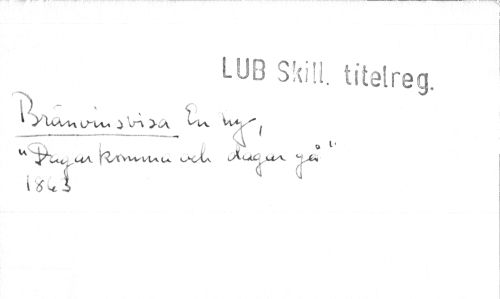 LUB Skill. titelreg.
Bränvinsvisa En ny,
"Dagar komma och dagar gå"
1863